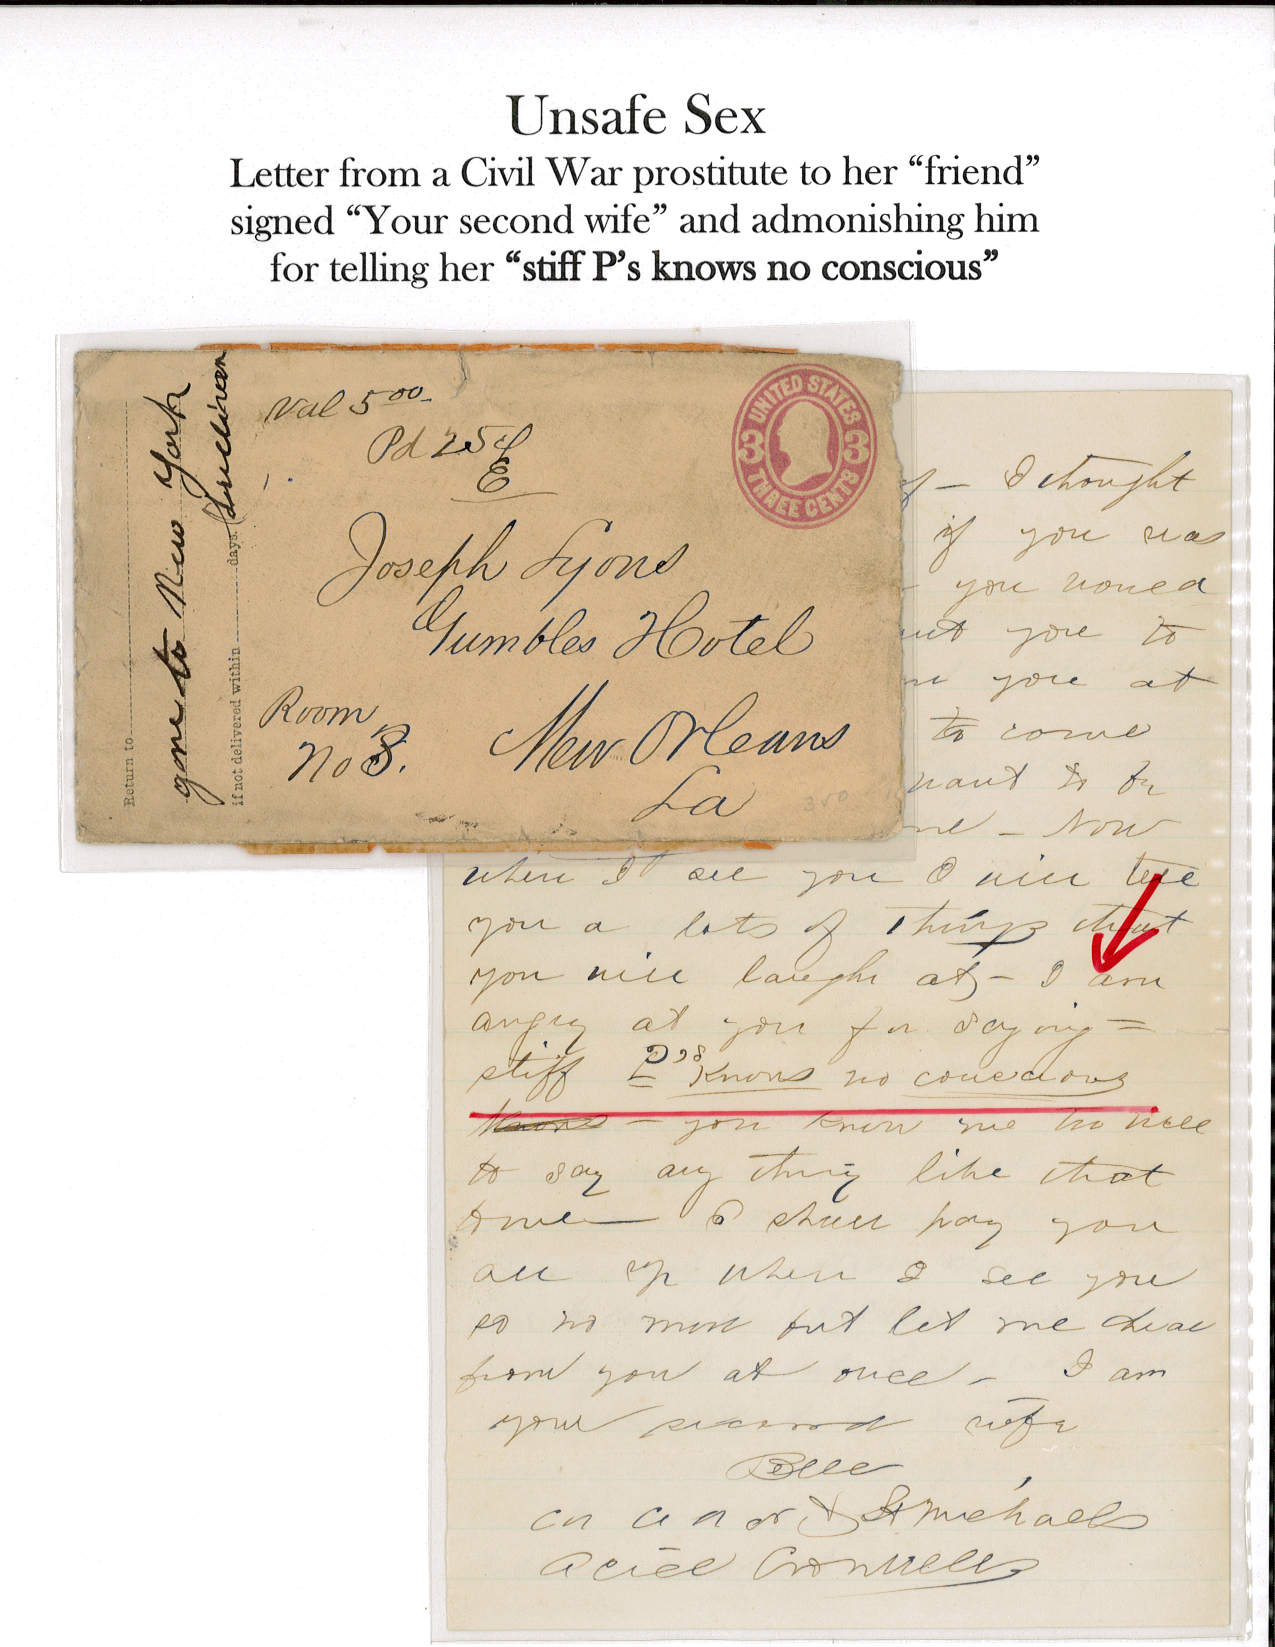 Unsafe Sex
Letter from a Civil War prostitute to her “friend”
signed “Your second wife” and admonishing him
for telling her “stiff P’s knows no conscious”
Return to
gone to New York
if not delivered within days,
Val 5 00
Pd 25¢
E
UNITED STATES
3 3
THREE CENTS
Joseph Lyons
Gumbles Hotel
Room
No 8.
New Orleans
La
350
I thought
if you was
you would
you to
you at
to come
want to be
me - Now
when I see you I will tell
you a lots of things that
you will laugh at - I am
angry at you for saying =
stiff P's knows no conscious
knows - you know me too well
to say any thing like that
I shall pay you
all up when I see you
so no more but let me hear
from you at once - I am
your second wife
Belle
St Michaels